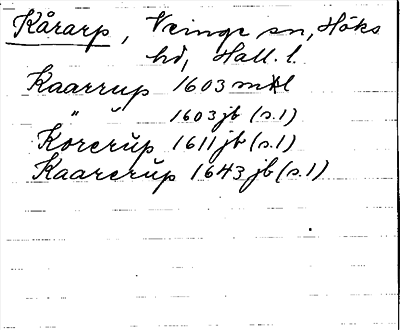 Kårarp, Veinge sn, Höks
hd, Hall. l.
Kaarrup 1603 mtl
" " 1603 jb (s.1)
Korerup 1611 jb (s.1)
Kaarerup 1643 jb (s.1)